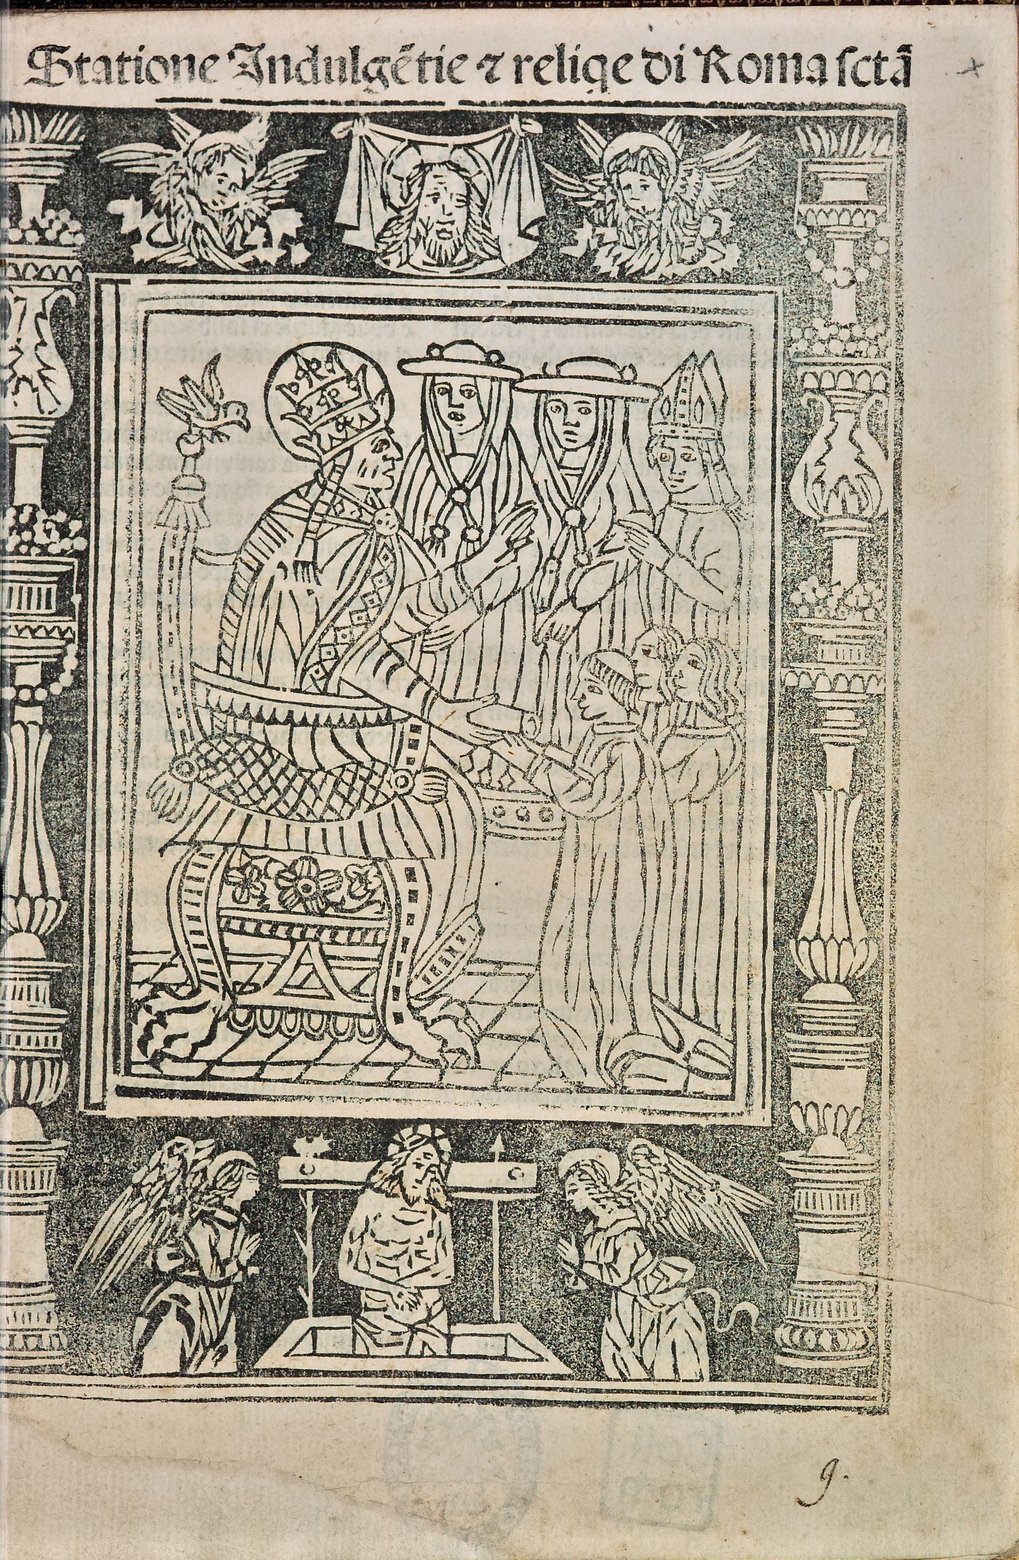 Statione Indulgẽtie ⁊ reliqe di Roma ſctã
g.